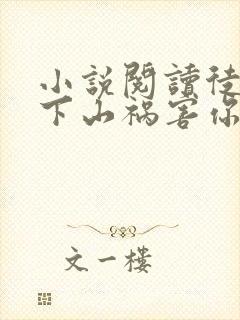 小説閱讀徒
下山禍害你
文一樓